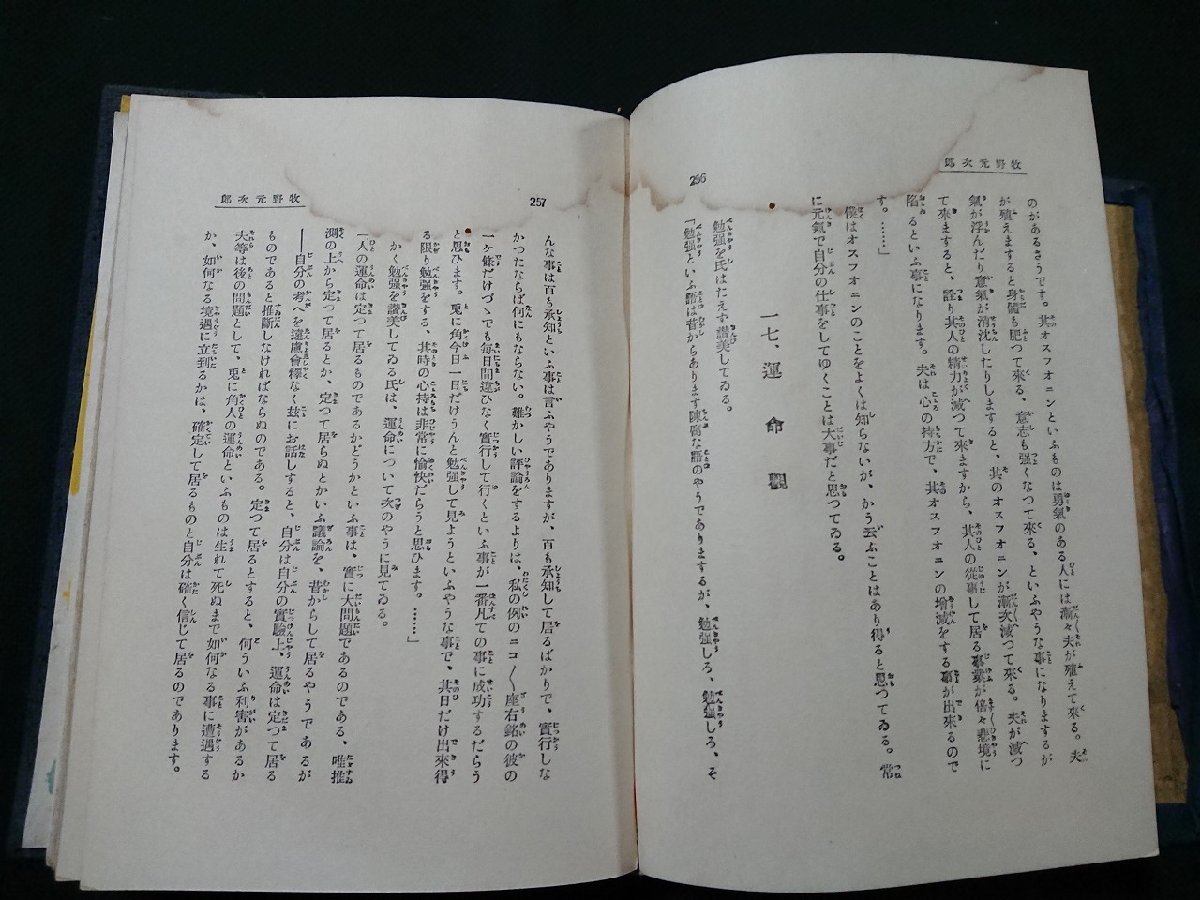 牧野元次郎
のがあるさうです。其オスフオニンといふものは勇氣のある人には漸々夫が殖えて來る。夫
が殖えますると身體も肥つて來る、意志も强くなつて來る、といふやうな事になりまするが
氣が浮んだり意氣が消沈したりしますると、其のオスフオニンが漸次減つて來る。夫が減つ
て來ますると、詰り其人の精力が減つて來ますから、其人の從事して居る事業が倍々悲境に
陷るといふ事になります。夫は心の持方で、其オスフオニンの增減をする事が出來るので
す。……」
僕はオスフオニンのことをよくは知らないが、かう云ふことはあり得ると思つてゐる。常
に元氣で自分の仕事をしてゆくことは大事だと思つてゐる。
一七、運命觀
勉强を氏はたえず讃美してゐる。
「勉强といふ語は昔からあります陳腐な語のやうでありまするが、勉强しろ、勉强しろ、そ
256
257
牧野元次郎
んな事は百も承知といふ事は言ふやうでありますが、百も承知して居るばかりで、實行しな
かつたならば何にもならない。難かしい評論をするよりは、私の例のニコ〱座右銘の彼の
一ヶ條だけづゝでも毎日間違ひなく實行して行くといふ事が一番凡ての事に成功するだらう
と思ひます。兎に角今日一日だけうんと勉强して見ようといふやうな事で、其日だけ出來得
る限り勉强をする、其時の心持は非常に愉快だらうと思ひます。……」
かく勉强を讃美してゐる氏は、運命について次のやうに見てゐる。
「人の運命は定つて居るものであるかどうかといふ事は、實に大問題であるのである、唯推
測の上から定つて居るとか、定つて居らぬとかいふ議論を、昔からして居るやうであるが
――自分の考へを遠慮會釋なく玆にお話しすると、自分は自分の實驗上、運命は定つて居る
ものであると推斷しなければならぬのである。定つて居るとすると、何ういふ利害があるか
大等は後の問題として、兎に角人の運命といふものは生れて死ぬまで如何なる事に遭遇する
か、如何なる境遇に立到るかは、確定して居るものと自分は確く信じて居るのであります。